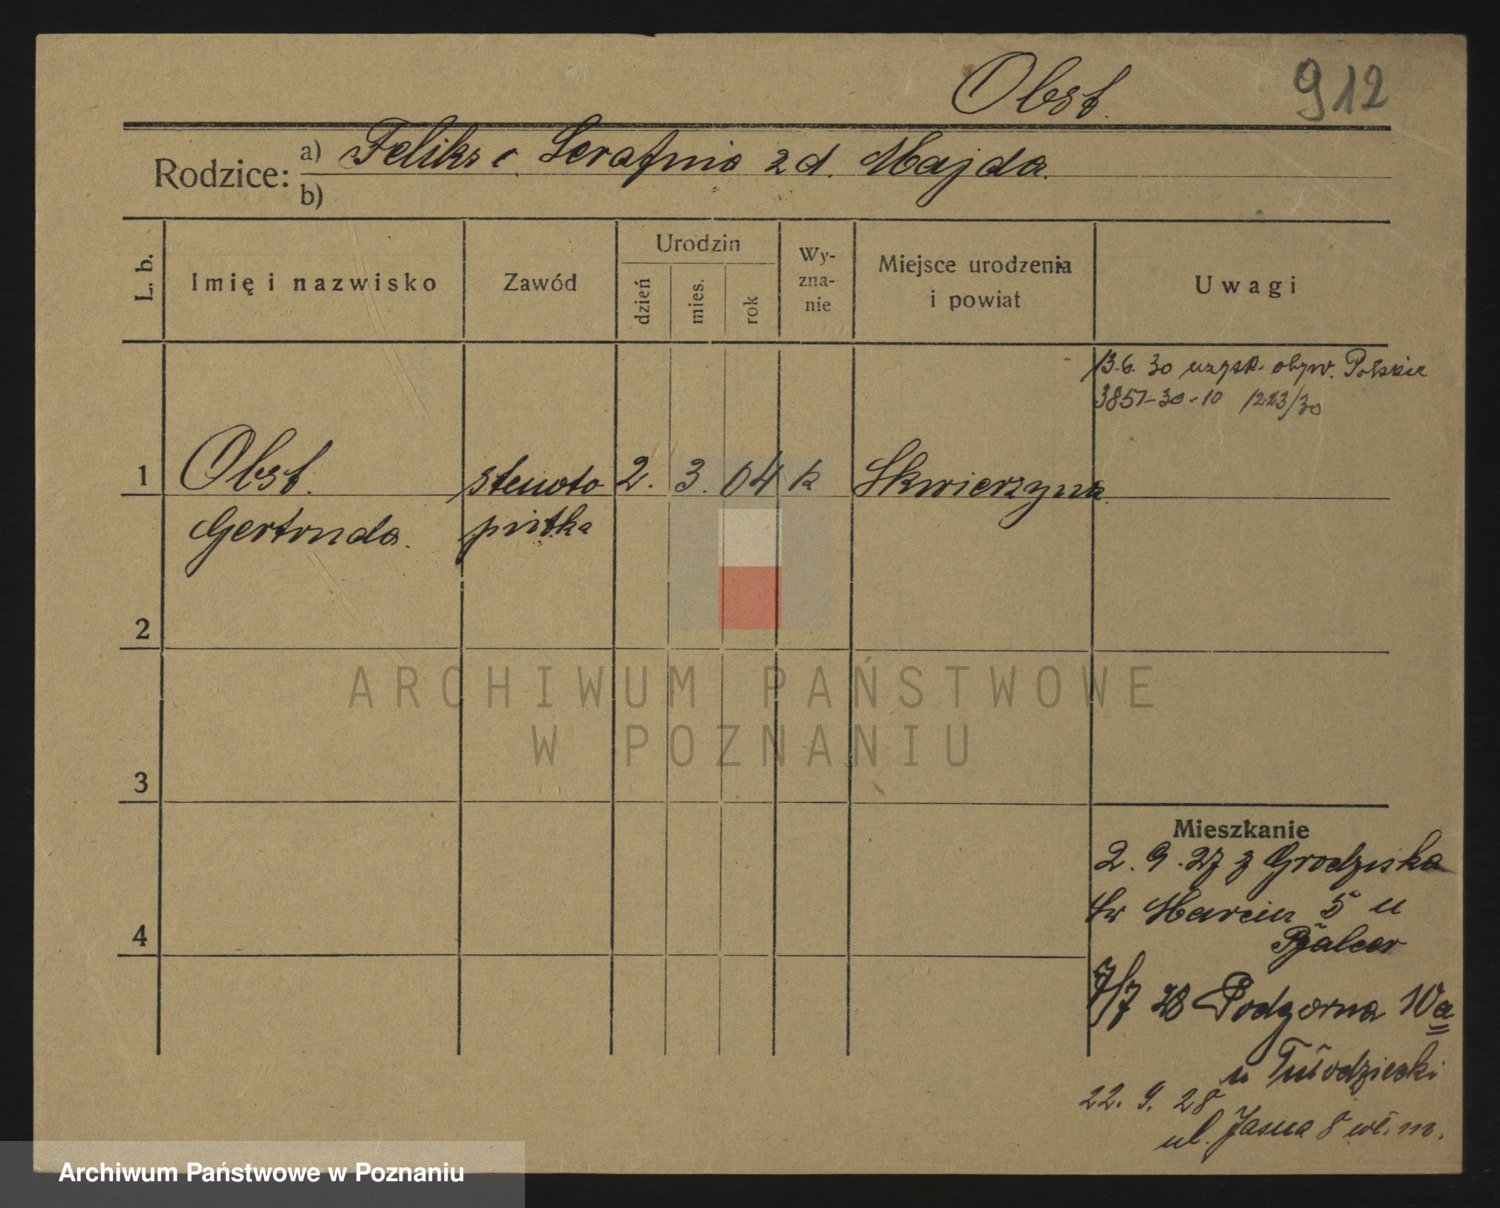 Obst.
912
Rodzice:
a) Feliks i Serafina zd. Majda.
b)
L. b.
Imię i nazwisko
Zawód
Urodzin
dzień
mies.
rok
Wy-
zna-
nie
Miejsce urodzenia
i powiat
Uwagi
13.6. 30 uzysk. obyw. Polskie
3851-30-10 1223/30
1 Obst. stenoto 2. 3. 04 k Skwierzyna
Gertruda. pistka
2
3
4
Mieszkanie
2. 9. 27 z Grodziska
Św Marcin 5 u
7/7 28 Podgorna 10a
u
22. 9. 28
ul. Jasna 8 wł. m.
ARCHIWUM PAŃSTWOWE
W POZNANIU
Archiwum Państwowe w Poznaniu